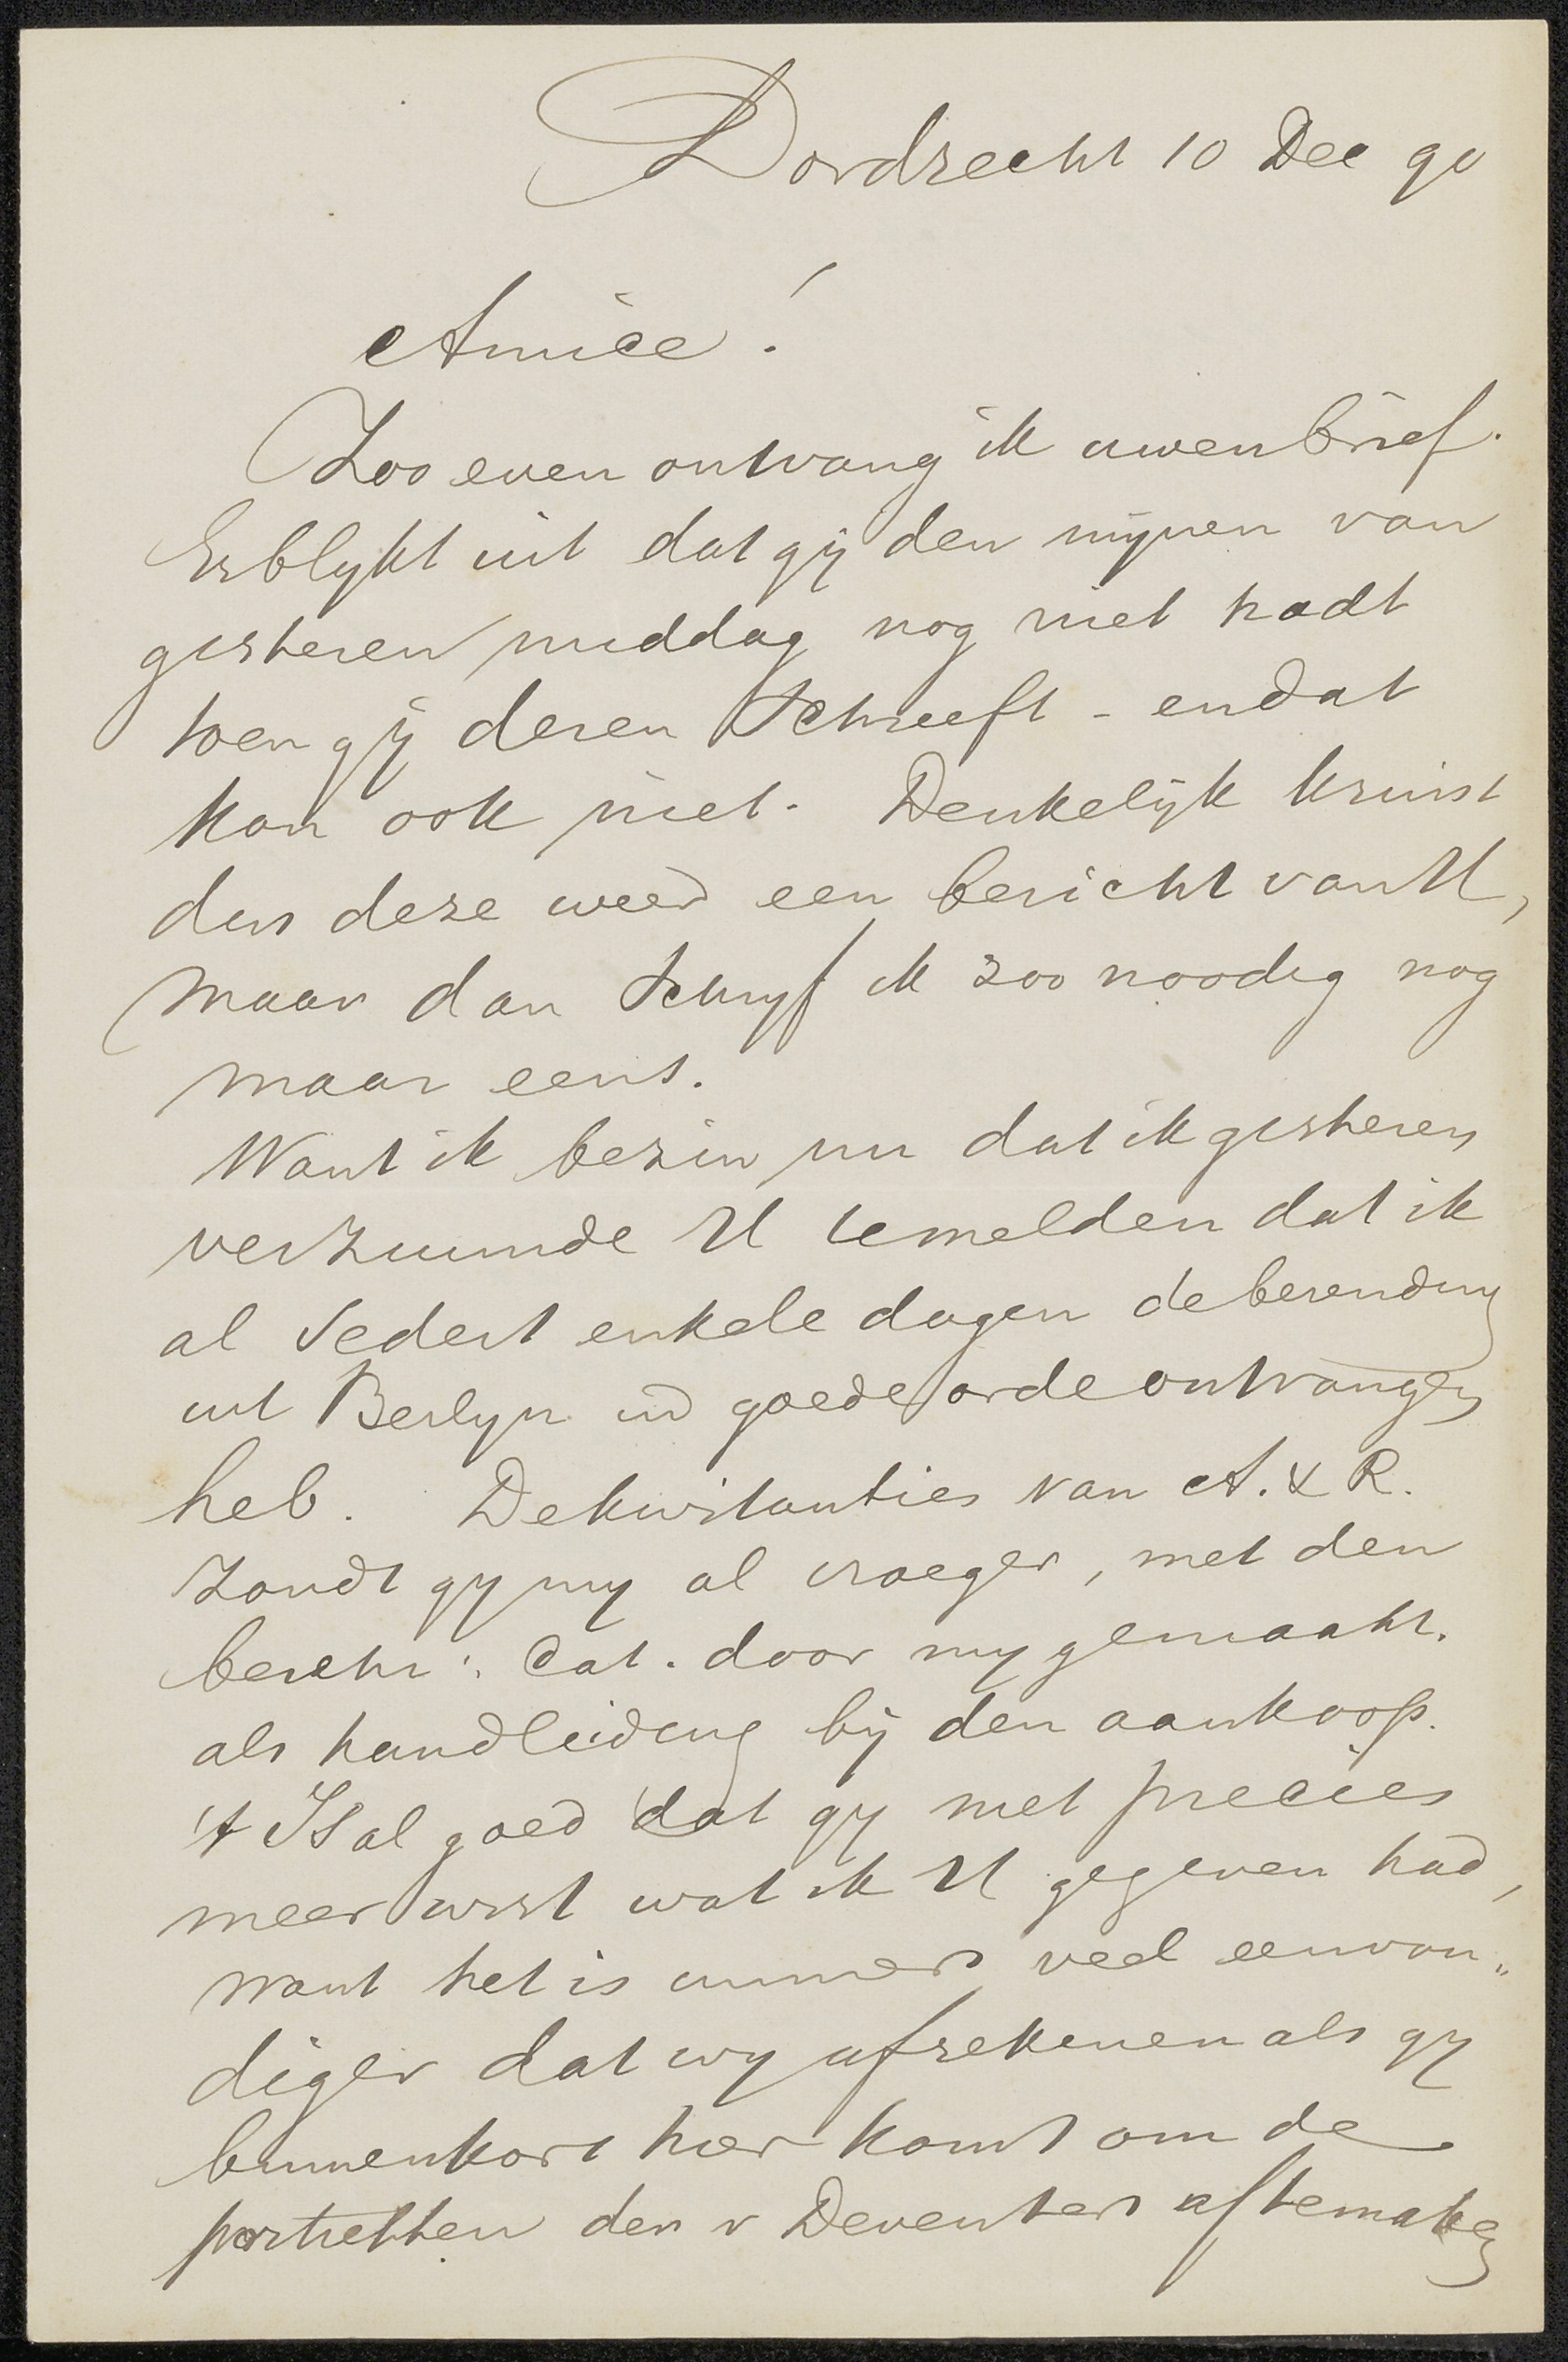 Dordrecht 10 Dec 90
Amice!
Zoo even ontvang ik uwen brief.
Er blykt uit dat gij den mijnen van
gisteren middag nog niet hadt
toen gij dezen Schreeft - en dat
kan ook niet. Denkelijk kruist
dus deze weer een bericht van U,
maar dan Schryf ik zoo noodig nog
maar eens.
Want ik bezin nu dat ik gisteren
verzuimde U te melden dat ik
al Sedert enkele dagen de bezending
uit Berlyn in goede orde ontvangen
heb. De kwitanties van A. & R.
Zondt gy my al vroeger, met den
beschr. Cat. door my gemaakt.
als handleiding bij den aankoop.
't Is al goed dat gy niet precies
meer wist wat ik U gegeven had,
want het is immers veel eenvou„
diger dat wy afrekenen als gy
binnenkort hier komt om de
portretten der v Deventers af te maken